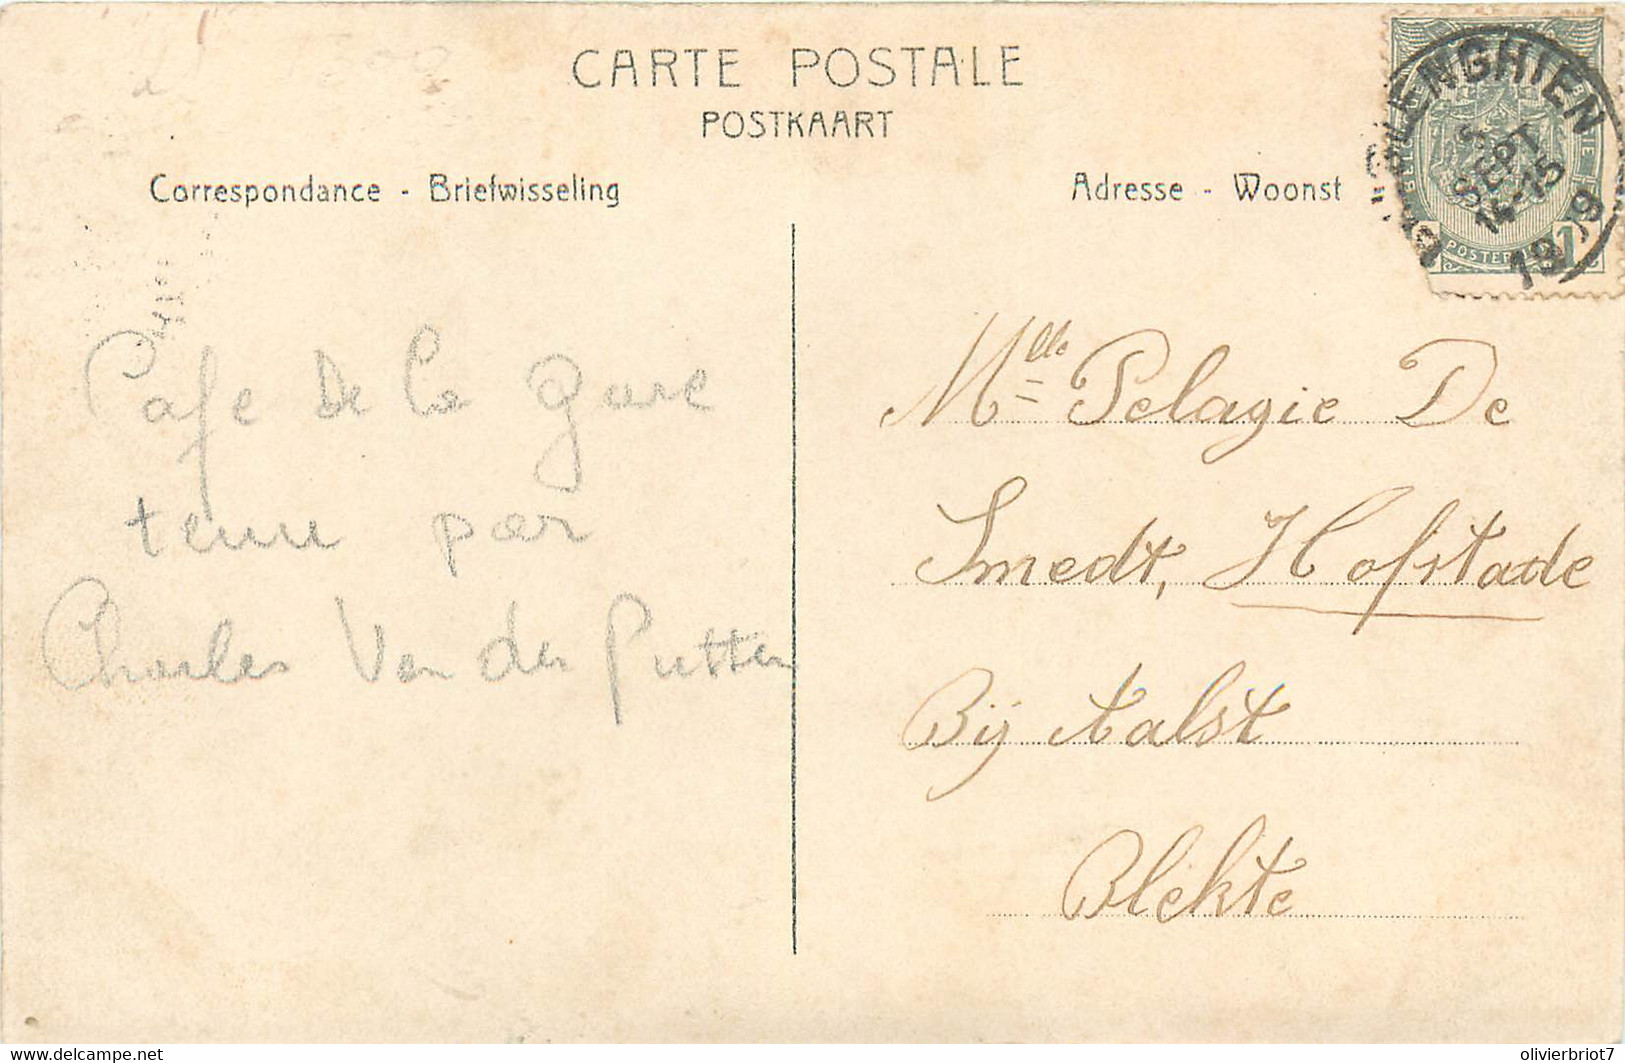 CARTE POSTALE
POSTKAART
Correspondance - Briefwisseling
Adresse - Woonst
ENGHIEN
5
SEPT
14-15
1909
BELGIQUE
BELGIE
POSTERIJEN
1
Cafe de la gare
tenu par
Charles Van der Putten
Mlle Pelagie De
Smedt, Hofstade
Bij Aalst
Blekte
https://www.delcampe.net
olivierbriot7